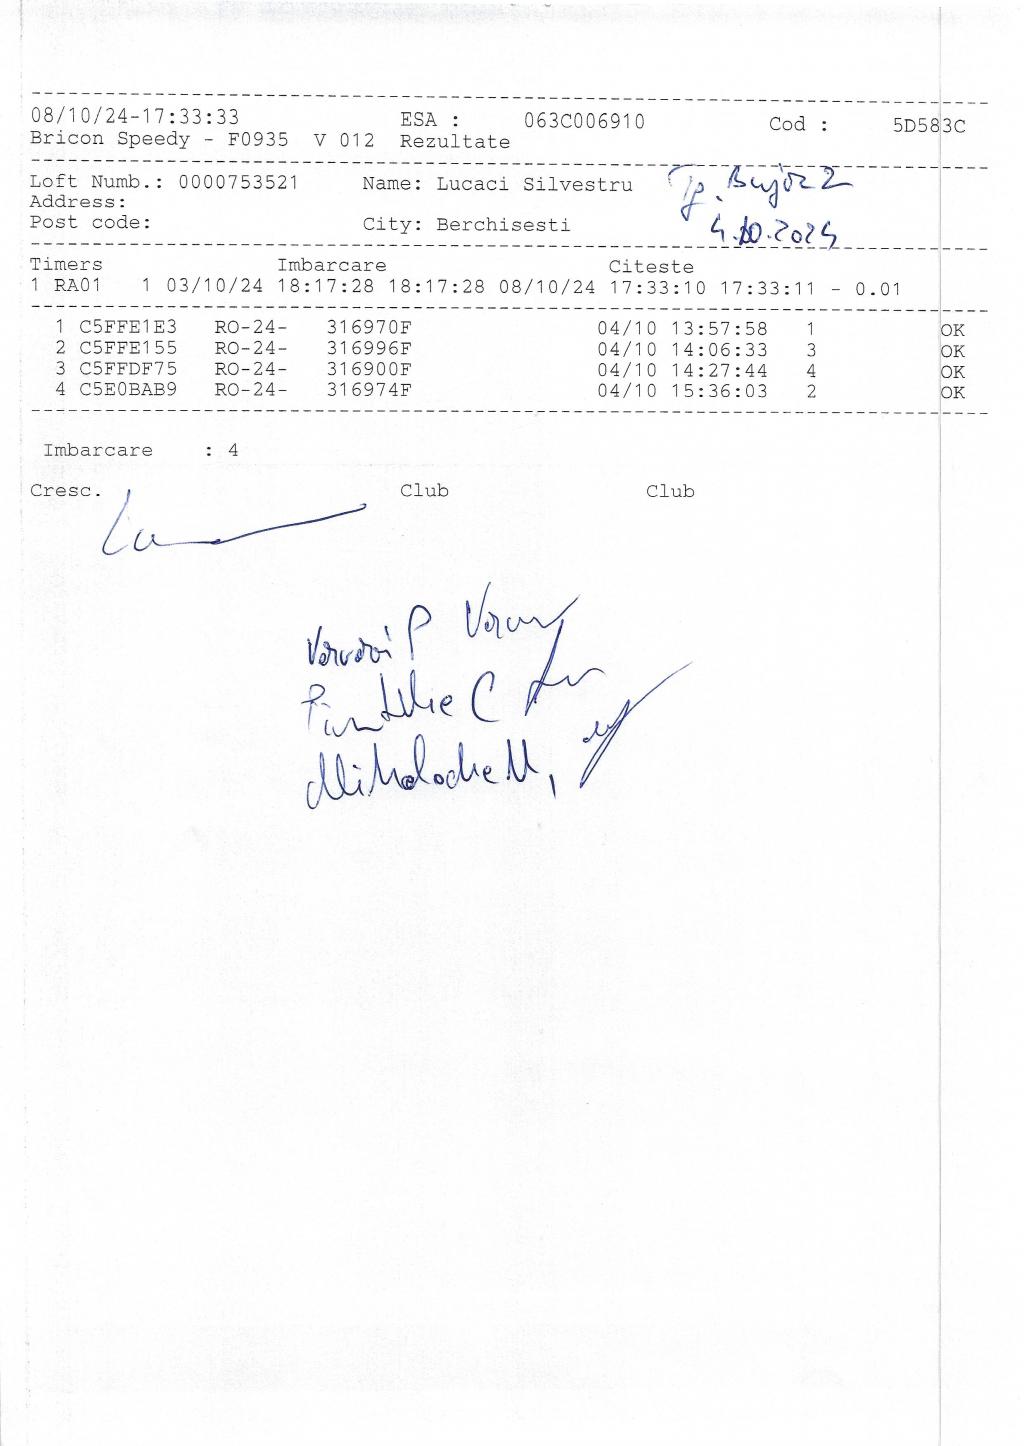 08/10/24-17:33:33 ESA : 063C006910 Cod : 5D583C
Bricon Speedy - F0935 V 012 Rezultate
Loft Numb.: 0000753521 Name: Lucaci Silvestru Tg. Bujor 2
Address:
Post code: City: Berchisesti 4.10.2024
Timers Imbarcare Citeste
1 RA01 1 03/10/24 18:17:28 18:17:28 08/10/24 17:33:10 17:33:11 - 0.01
1 C5FFE1E3 RO-24- 316970F 04/10 13:57:58 1 OK
2 C5FFE155 RO-24- 316996F 04/10 14:06:33 3 OK
3 C5FFDF75 RO-24- 316900F 04/10 14:27:44 4 OK
4 C5E0BAB9 RO-24- 316974F 04/10 15:36:03 2 OK
Imbarcare : 4
Cresc. Club Club